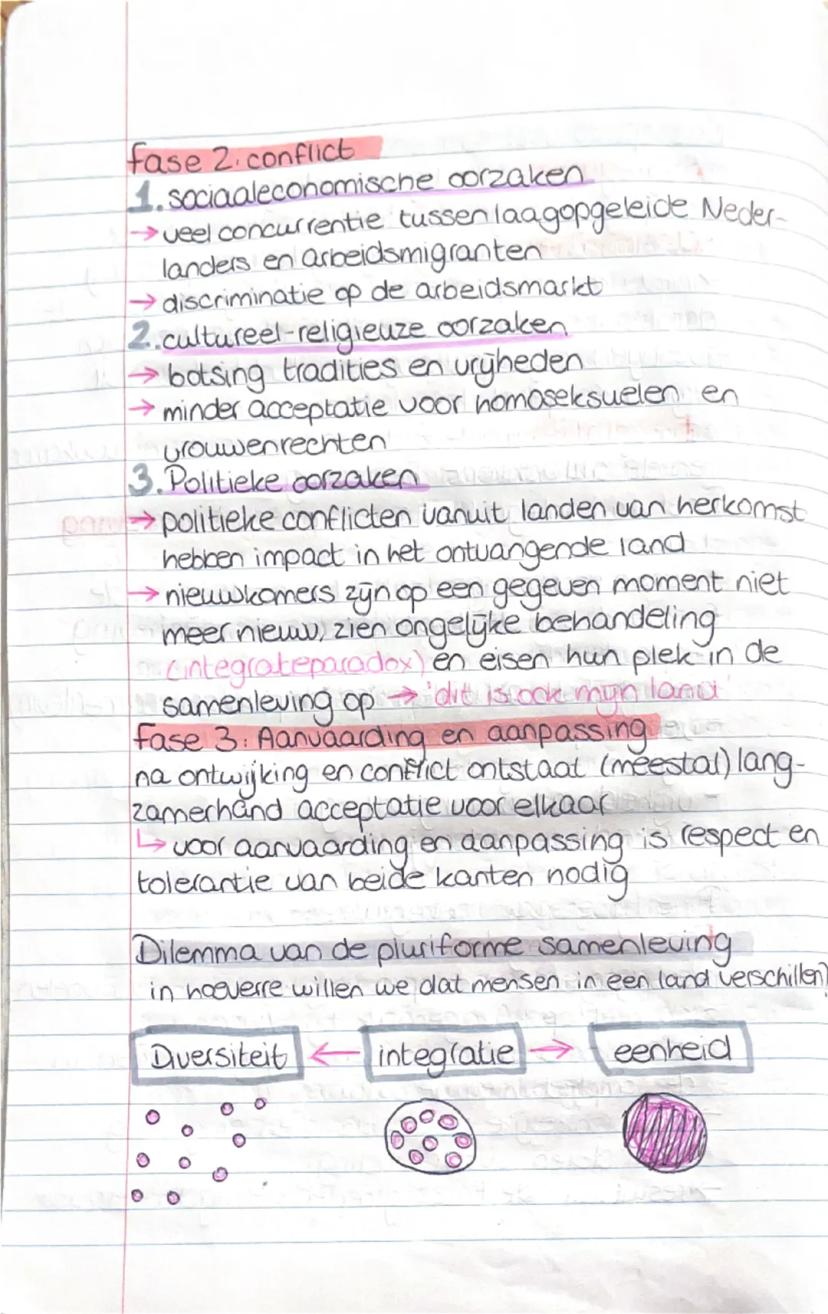 fase 2: conflict
1. sociaaleconomische oorzaken
→ veel concurrentie tussen laagopgeleide Neder-
landers en arbeidsmigranten
→ discriminatie op de arbeidsmarkt
2. cultureel-religieuze oorzaken
→ botsing tradities en vrijheden
→ minder acceptatie voor homoseksuelen en
vrouwenrechten
3. Politieke oorzaken
→ politieke conflicten vanuit landen van herkomst
hebben impact in het ontvangende land
→ nieuwkomers zijn op een gegeven moment niet
meer nieuw, zien ongelijke behandeling
(integratieparadox) en eisen hun plek in de
samenleving op → 'dit is ook mijn land'
fase 3: Aanvaarding en aanpassing
na ontwijking en conflict ontstaat (meestal) lang-
zamerhand acceptatie voor elkaar
↳ voor aanvaarding en aanpassing is respect en
tolerantie van beide kanten nodig
Dilemma van de pluriforme samenleving
in hoeverre willen we dat mensen in een land verschillen?
Diversiteit ← integratie → eenheid